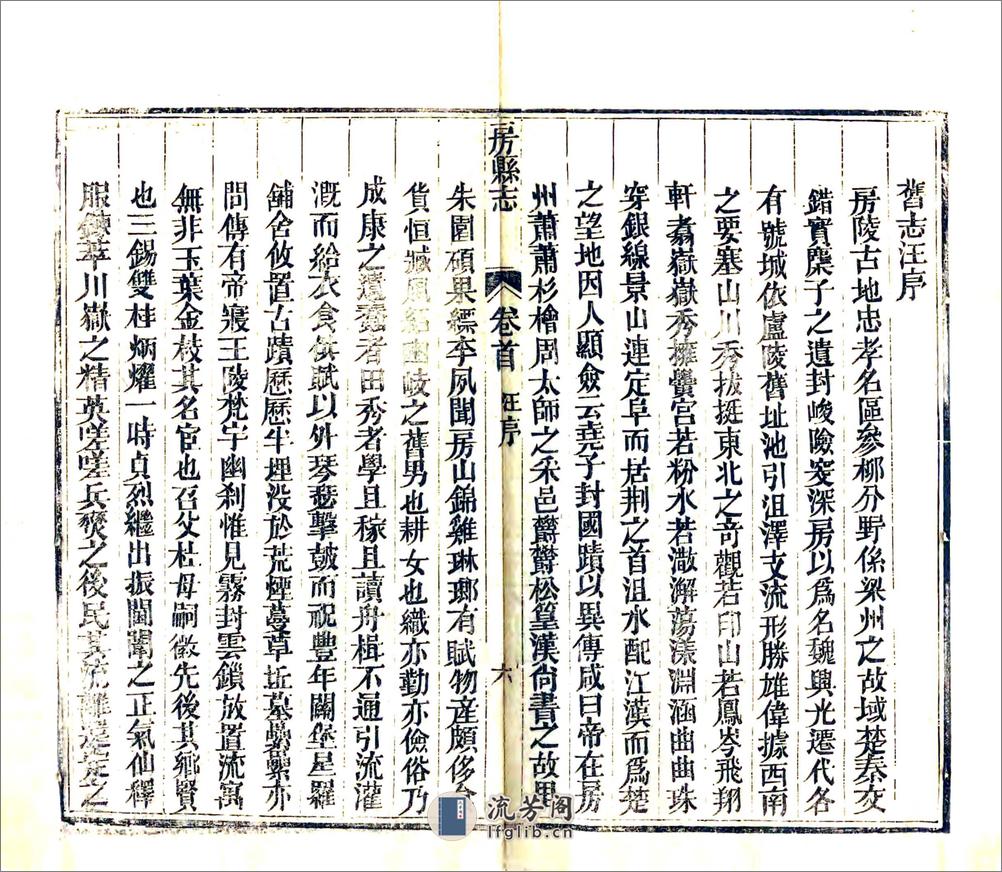 舊志汪序
房陵古地忠孝名區參柳分野係梁州之故域楚秦交
錯實麇子之遺封峻險突深房以爲名魏興光遷代各
有號城依盧陵舊址池引沮澤支流形勝雄偉據西南
之要塞山川秀拔挺東北之奇觀若印山若鳳岑飛翔
軒翥嶽嶽秀擁黌宮若粉水若潵澥蕩漾淵涵曲曲珠
穿銀線景山連定阜而居荆之首沮水配江漢而爲楚
之望地因人顯僉云堯子封國蹟以異傳咸曰帝在房
州蕭蕭杉檜周太師之采邑欝欝松篁漢尙書之故里
房縣志
卷首
汪序
六
朱園碩果縹李夙聞房山錦雞琳瑯有賦物産頗侈
貨恒風幽岐之舊男也耕女也織亦勤亦儉俗乃
成康之遺蠢者田秀者學且稼且讀舟楫不通引流灌
漑而給衣食供賦以外琴瑟擊皷而祝豐年關堡星羅
鋪舍攸置古蹟歷歷半埋没於荒煙蔓草坵墓纍纍亦
問傳有帝寢王陵梵宇幽刹惟見霧封雲鎖放置流寓
無非玉葉金枝其名宦也召父杜母嗣徽先後其鄉賢
也三錫雙桂炳燿一時貞烈繼出振閨闈之正氣仙釋
服鍊萃川嶽之精英嗟嗟兵燹之後民其流離之
流芳阁
lfglib.cn